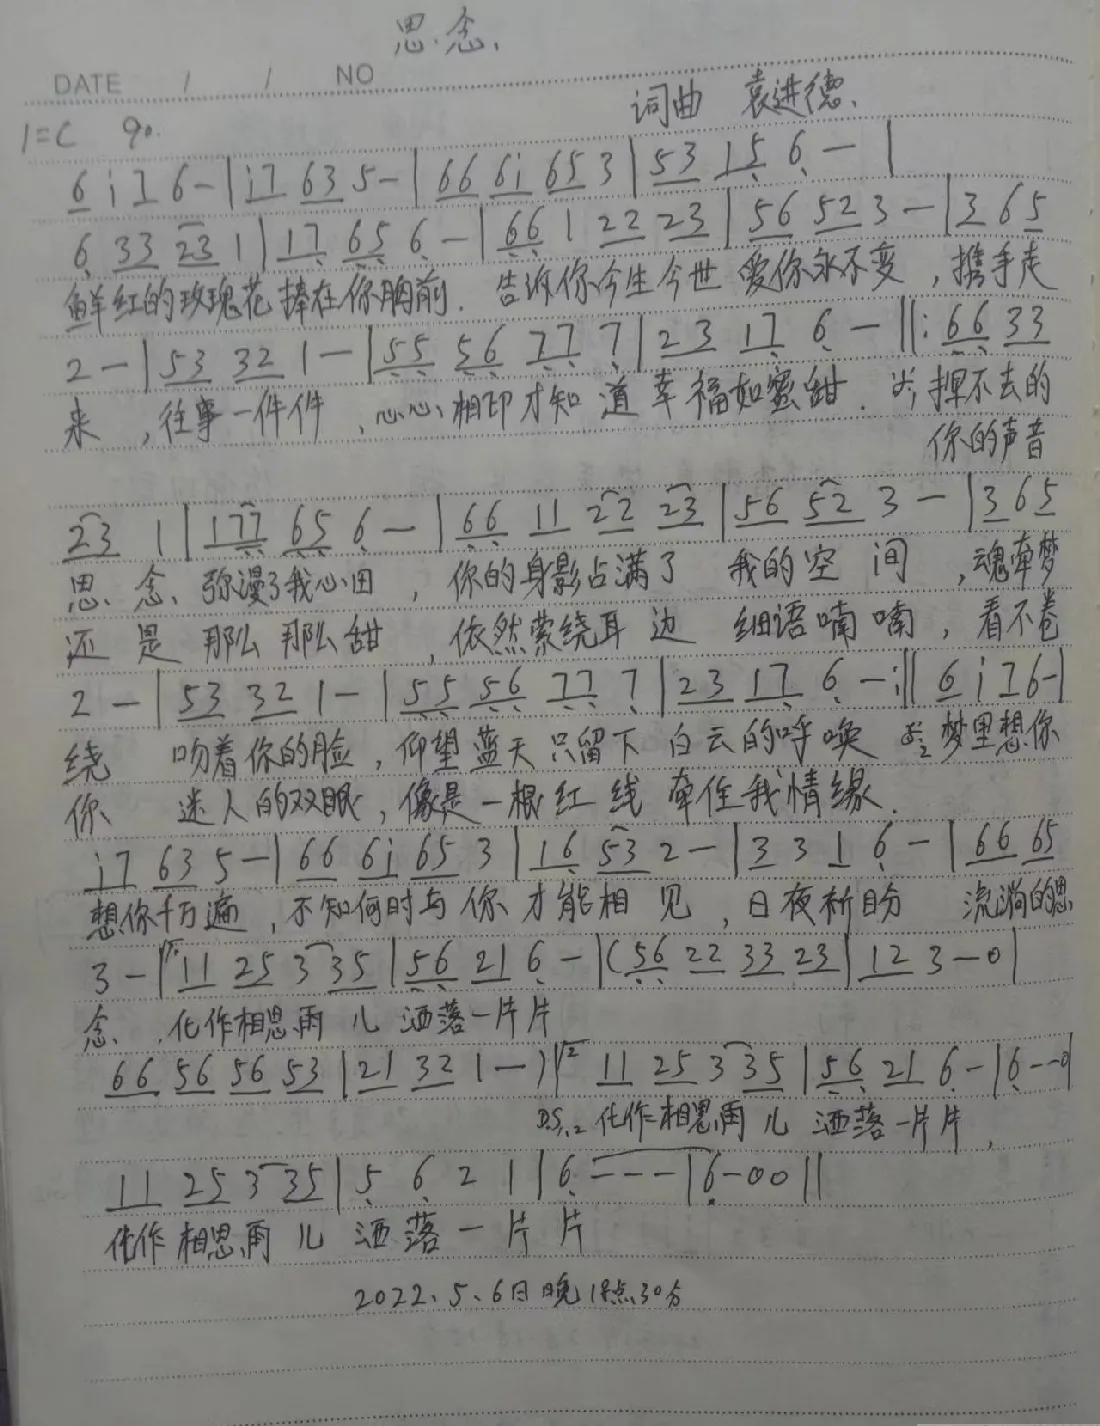 思念
DATE / / NO
词曲 袁进德
1=C 90
6 i 7 6 - | i7 63 5 - | 66 6i 65 3 | 53 15 6 - |
6 33 23 1 | 17 65 6 - | 66 1 22 23 | 56 52 3 - | 3 65
鲜红的玫瑰花捧在你胸前. 告诉你今生今世 爱你永不变 , 携手走
2 - | 53 32 1 - | 55 56 77 7 | 23 17 6 - ||: 66 33
来 , 往事一件件 , 心心相印才知道 幸福如蜜甜. 挥不去的
你的声音
23 1 | 177 65 6 - | 66 11 22 23 | 56 52 3 - | 3 65
思念 弥漫了我心田 , 你的身影占满了 我的空间 , 魂牵梦
还是 那么那么甜 , 依然萦绕耳边 细语喃喃 , 看不卷
2 - | 53 32 1 - | 55 56 77 7 | 23 17 6 - :|| 6 i 7 6 - |
绕 吻着你的脸 , 仰望蓝天只留下 白云的呼唤 梦里想你
你 迷人的双眼 , 像是一根红线 牵住我情缘.
i7 63 5 - | 66 6i 65 3 | 16 53 2 - | 3 3 1 6 - | 66 65
想你千万遍 , 不知何时与你才能相见 , 日夜祈盼 流淌的思
3 - | 11 25 3 35 | 56 21 6 - | (56 22 33 23 | 12 3 - 0 |
念 , 化作相思雨儿 洒落一片片
66 56 56 53 | 21 32 1 - ) | 2 11 25 3 35 | 56 21 6 - | 6 - - 0 |
D.S.2 化作相思雨儿 洒落一片片 ,
11 25 3 35 | 5 6 2 1 | 6 - - - | 6 - 0 0 ||
化作相思雨儿 洒落一片片
2022、5、6日晚 点30分